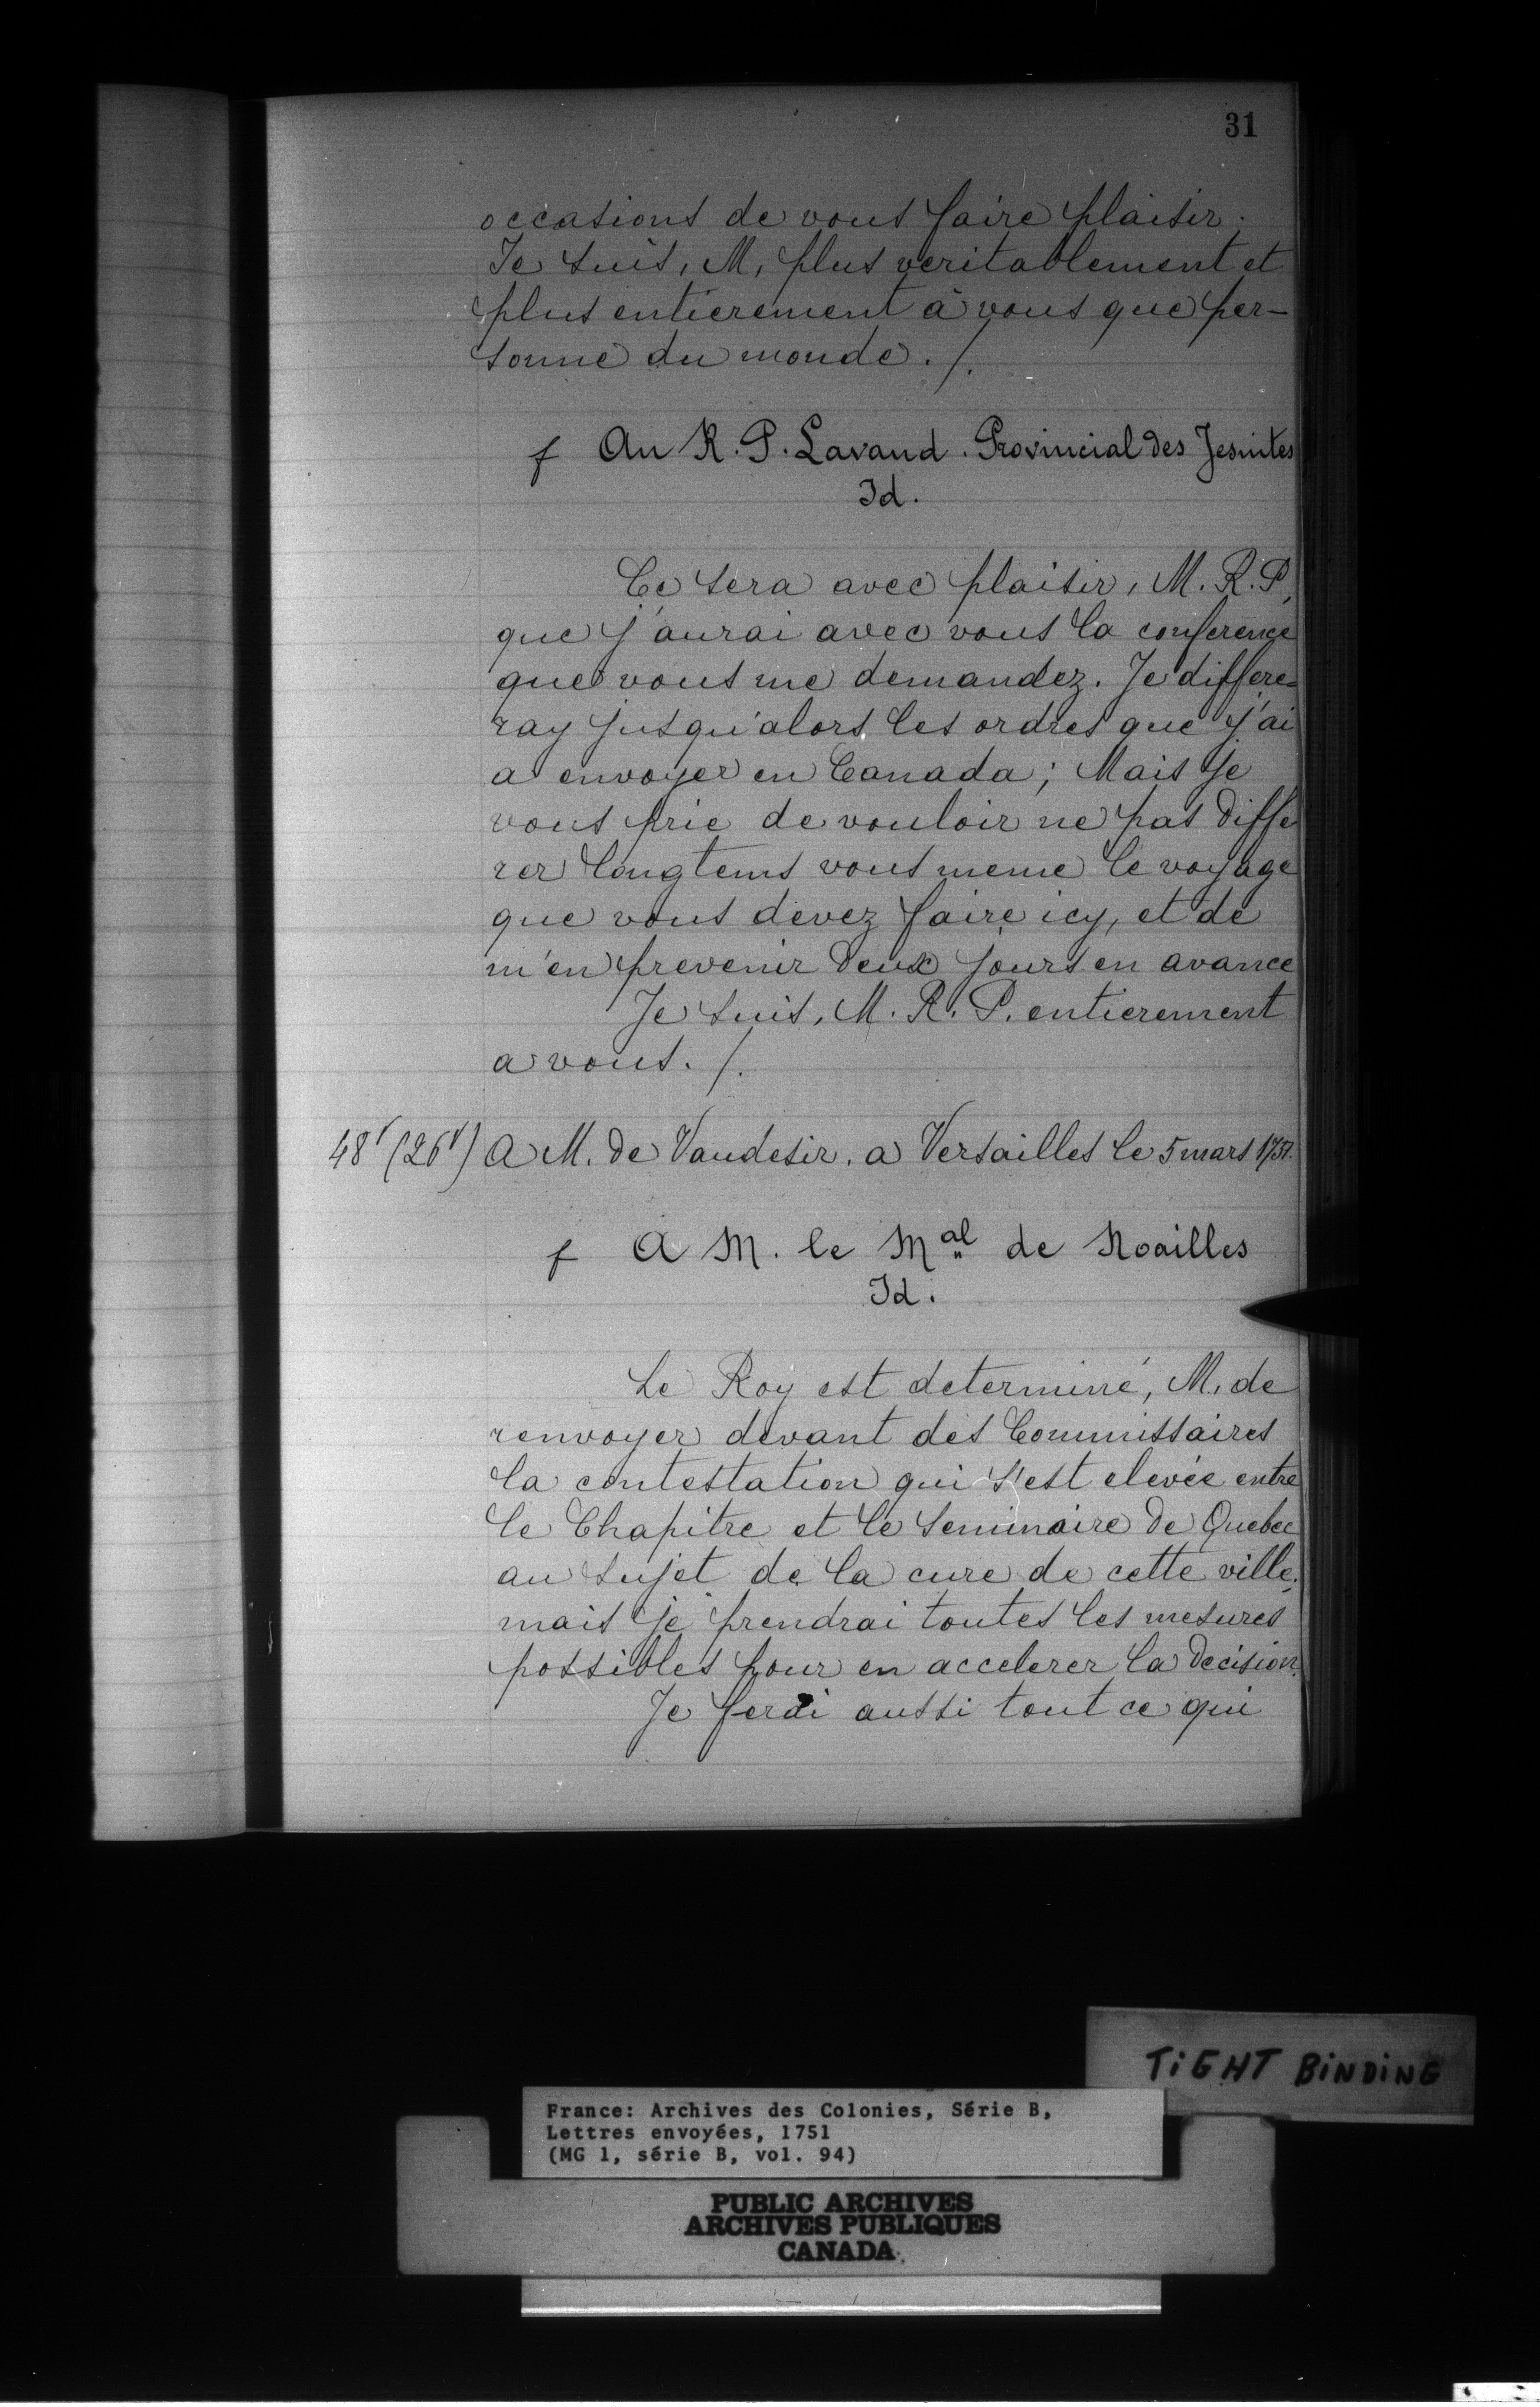 31
occasions de vous faire plaisir.
Je suis, M, plus veritablement et
plus entierement à vous que per-
sonne du monde. /.
f Au R. P. Lavaud. Provincial des Jesuites
Id.
Ce sera avec plaisir, M. R. P,
que j'aurai avec vous la conference
que vous me demandez. Je differe-
ray jusqu'alors les ordres que j'ai
a envoyer en Canada; Mais je
vous prie de vouloir ne pas diffe
rer longtems vous meme le voyage
que vous devez faire icy, et de
m'en prevenir deux jours en avance
Je suis, M. R. P. entierement
a vous. /.
A M. de Vaudesir. a Versailles le 5 mars 1751.
f A M. le Mal de Noailles
Id.
Le Roy est determiné, M. de
renvoyer devant des Commissaires
la contestation qui s'est elevée entre
le Chapitre et le Seminaire de Quebec
au sujet de la cure de cette ville;
mais je prendrai toutes les mesures
possibles pour en accelerer la decision.
Je ferai aussi tout ce qui
TiGHT BiNDiNG
France: Archives des Colonies, Série B,
Lettres envoyées, 1751
(MG 1, série B, vol. 94)
PUBLIC ARCHIVES
ARCHIVES PUBLIQUES
CANADA